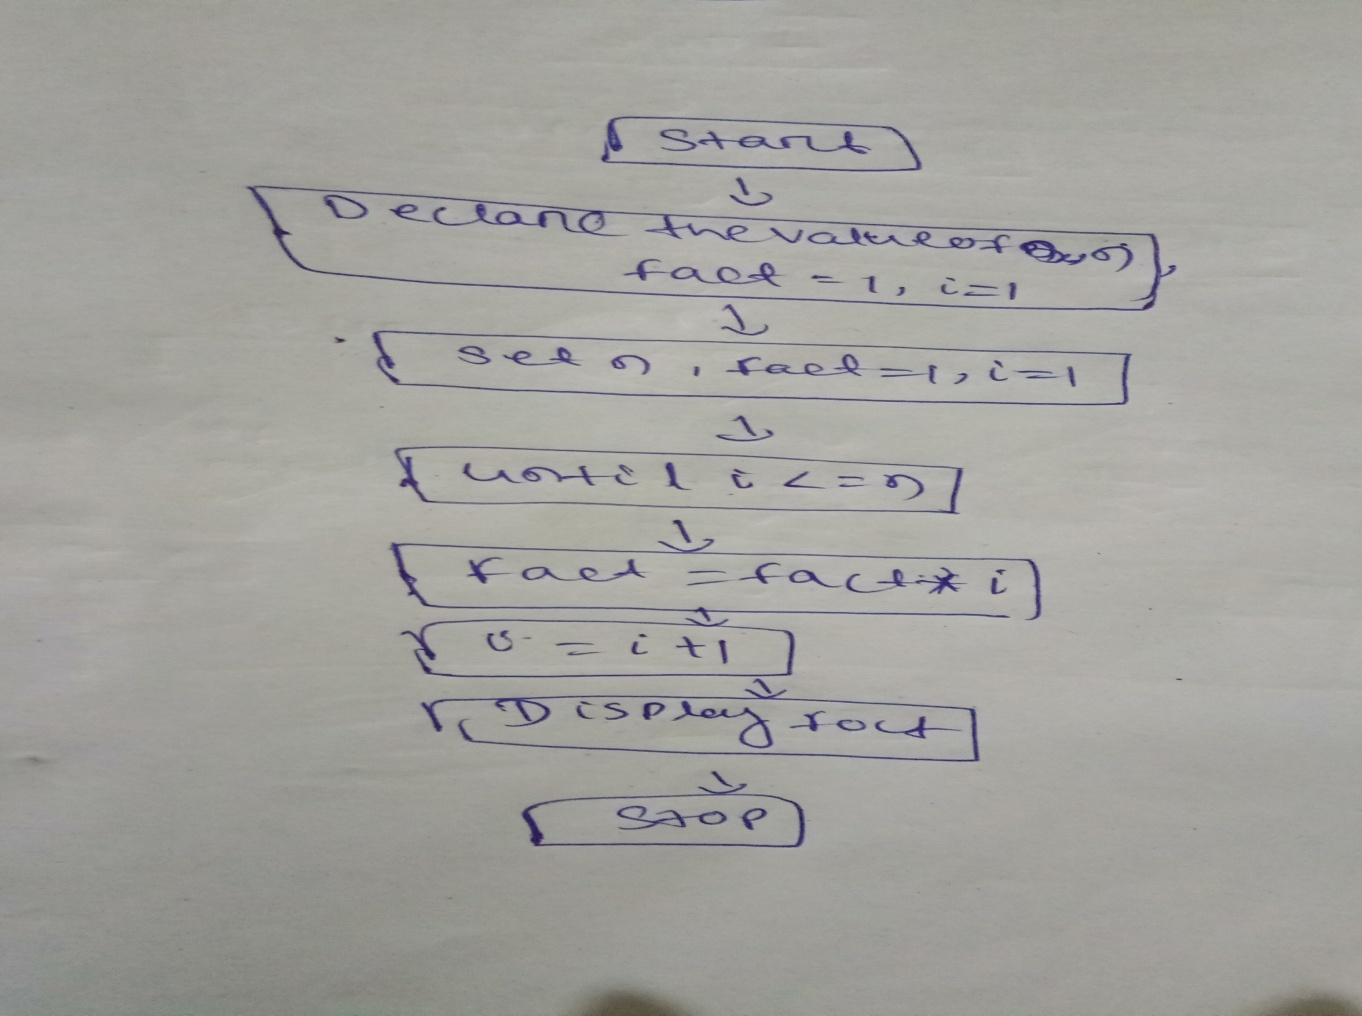 Start
Declare the value of n
fact = 1, i=1
set n, fact=1, i=1
until i <= n
fact = fact * i
i = i+1
Display fact
Stop